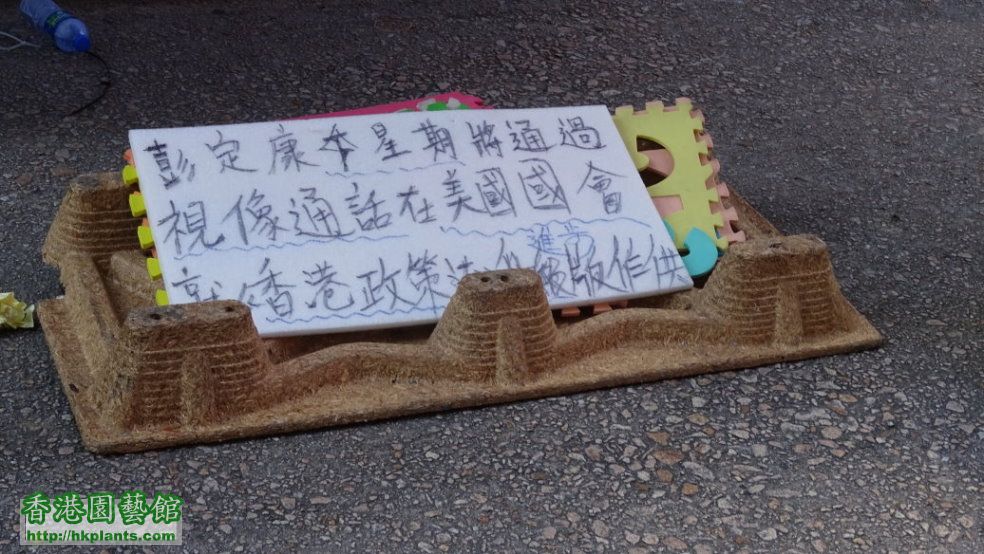 彭定康本星期將通過
視像通話在美國國會
就香港政策法
進步版作供
香港園藝館
http://hkplants.com